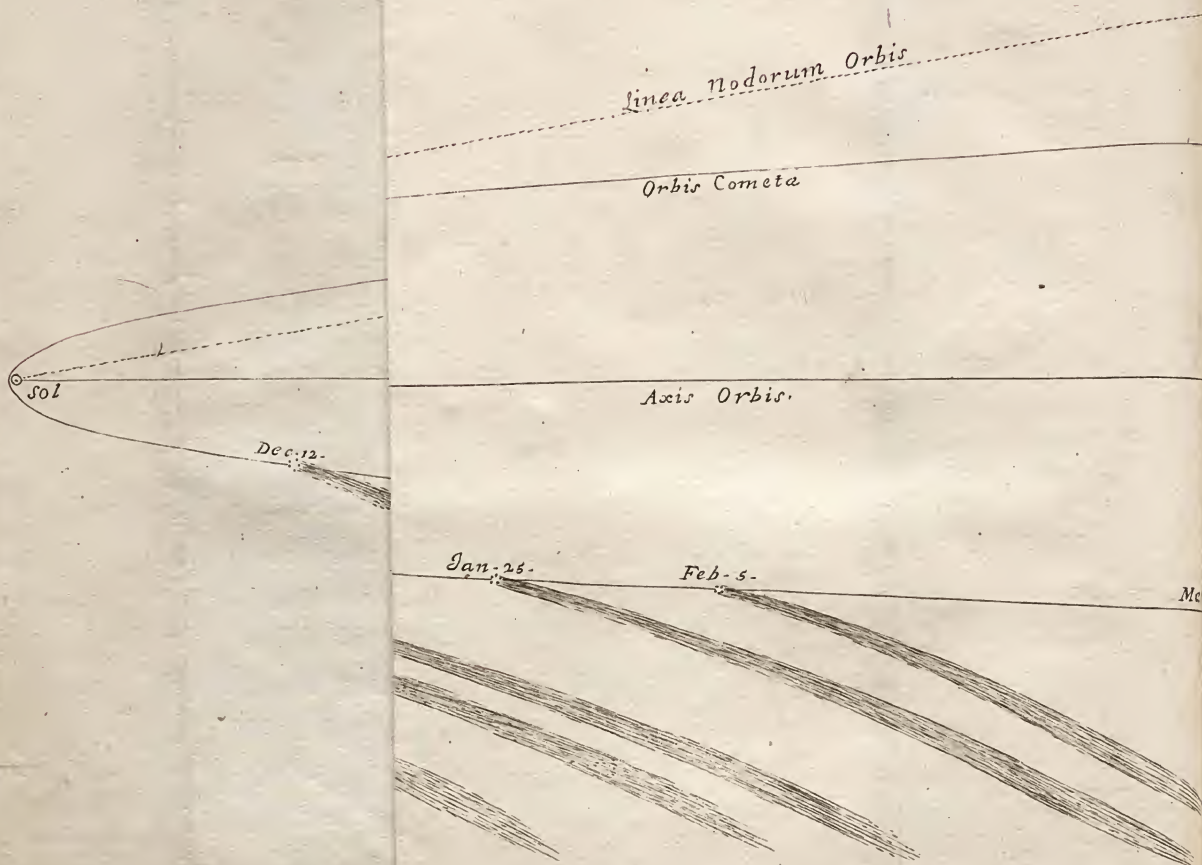 Linea Nodorum Orbis
Orbis Cometæ
Sol
Axis Orbis.
Dec. 12.
Jan. 25.
Feb. 5.